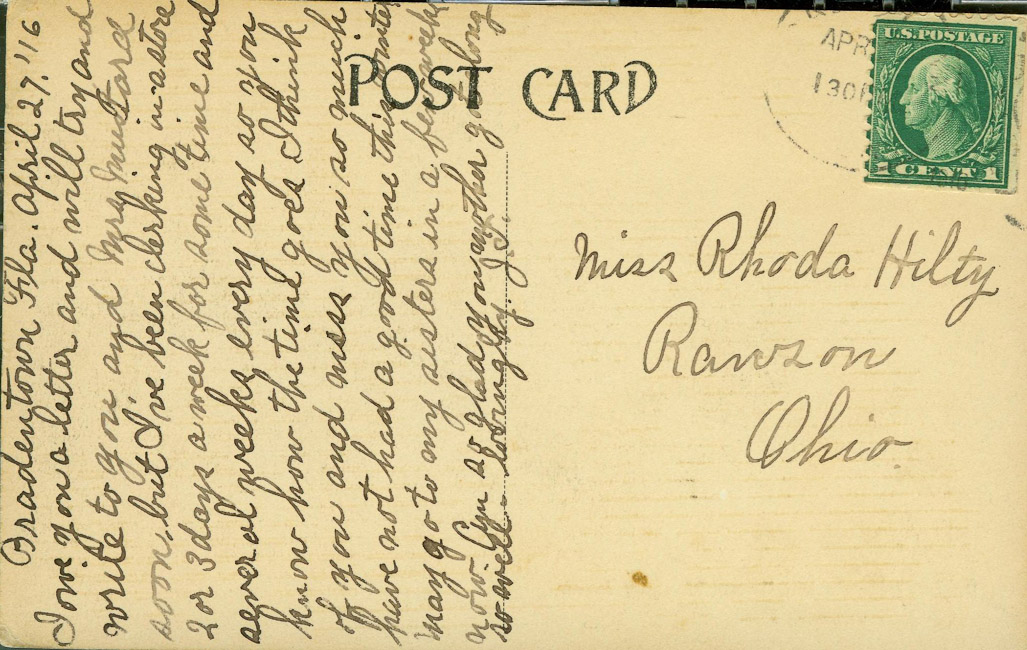 Bradentown Fla. April 27. '16
I owe you a letter and will try and
write to you and Mrs Mustard
soon, but I've been clerking in a store
2 or 3 days a week for some time and
several weeks every day so you
know how the time goes I think
of you and miss you so much
have not had a good time this winter
may go to my sisters in a few weeks
now. Am so glad your mother gets along
so well - lovingly
POST CARD
APR
130P
U.S. POSTAGE
1 CENT 1
Miss Rhoda Hilty
Rawson
Ohio.